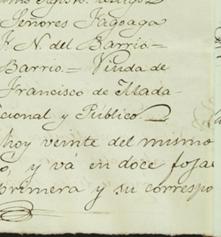 Señores Fagoaga
N. del Barrio =
Barrio. = Viuda de
Francisco de Mada-
cional y Público
hoy veinte del mismo
o, y vá en doce fojas
primera y su correspo